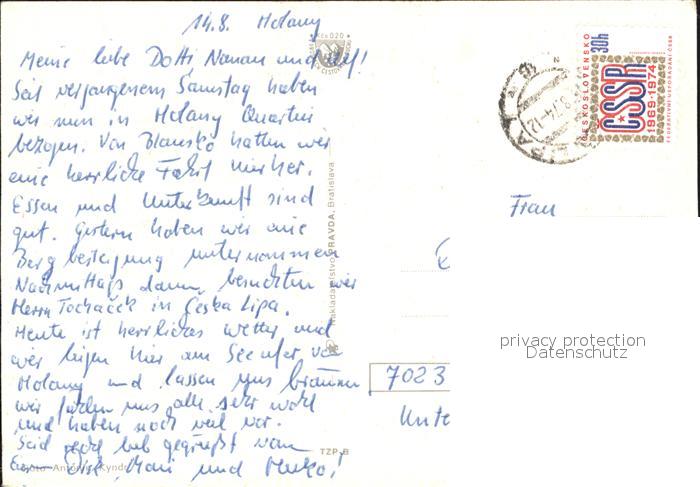 14.8. Holany
Meine liebe Dotti Nanan und Ulf!
Seit vergangenem Samstag haben
wir nun in Holany Quartier
bezogen. Von Blansko hatten wir
eine herrliche Fahrt hierher.
Essen und Unterkunft sind
gut. Gestern haben wir eine
Bergbesteigung unternommen
Nachmittags dann besuchten wir
Herrn Tocháček in Česka Lipa.
Heute ist herrliches Wetter und
wir liegen hier am Seeufer von
Holany und lassen uns bräunen
wir fühlen uns alle sehr wohl
und haben noch viel vor.
Seid recht lieb gegrüßt von
Dirk, Mani und Heiko!
Antonín Kynde
TZP-B
Kčs 0,20
Nakladatelstvo PRAVDA, Bratislava
ČESKOSLOVENSKO
30h
ČSSR
1969-1974
FEDERATIVNÍ USPOŘÁDÁNÍ ČSSR
Frau
7023
Unte
privacy protection
Datenschutz